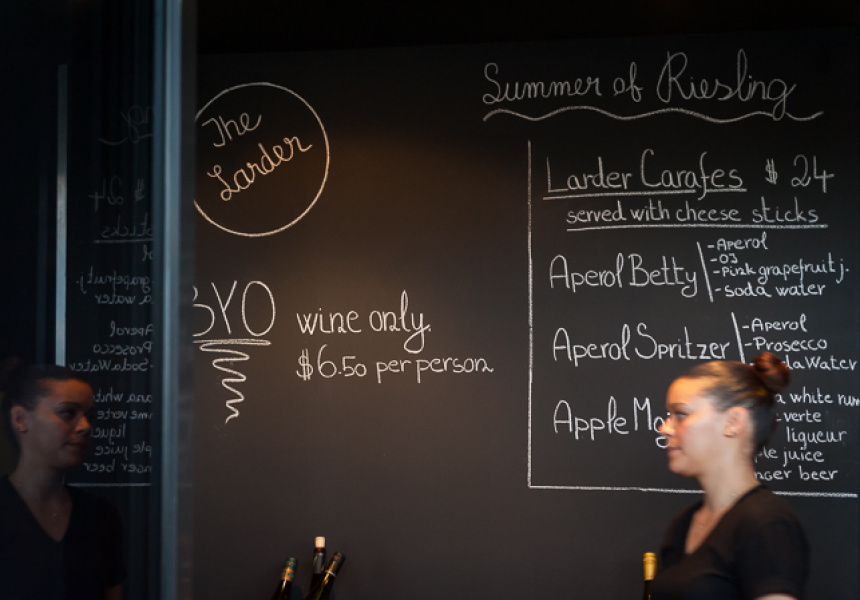 The
Larder
BYO wine only.
$6.50 per person
Summer of Riesling
Larder Carafes $24
served with cheese sticks
Aperol Betty
-Aperol
-O3
-Pink grapefruit j.
-Soda water
Aperol Spritzer
-Aperol
-Prosecco
Water
Apple
white
verte
liqueur
juice
beer